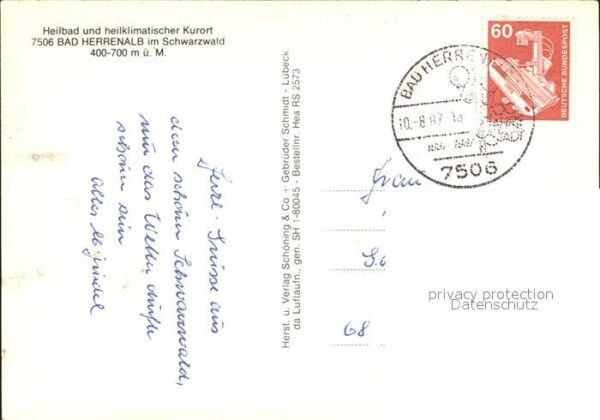 Heilbad und heilklimatischer Kurort
7506 BAD HERRENALB im Schwarzwald
400-700 m ü. M.
Grüsse aus
dem schönen Schwarzwald,
nur das Wetter dürfte
schöner sein
Alles
Herst. u. Verlag Schöning & Co + Gebrüder Schmidt - Lübeck
da Luftaufn., gen. SH 1-80045 - Bestellnr. Hea RS 2573
60
DEUTSCHE BUNDESPOST
BAD HERREN
10.-8.87
1887 1987
STADT
7506
Frau
68
privacy protection
Datenschutz